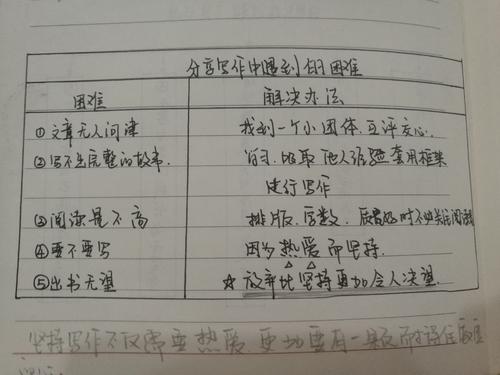 分享写作中遇到的困难
困难 解决办法
①文章无人问津 找到一个小团体.互评交心.
②写不出完整的故事. 学习.吸取他人经验套用框架
进行写作
③阅读量不高 排版.字数.质量 时不必关注阅读
④要不要写 因为热爱而坚持.
⑤出书无望 ☆放弃比坚持更加令人绝望.
坚持写作不仅需要热爱 更加要有一颗耐得住寂寞